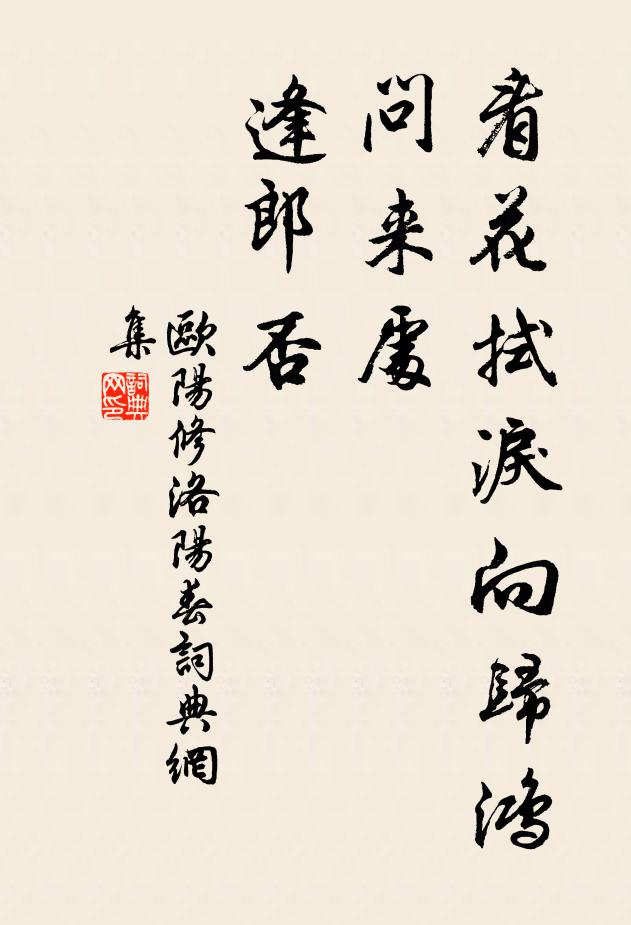 看花拭淚向歸鴻
問来處
逢郎否
歐陽修洛陽春詞典網
集
詞典
网印